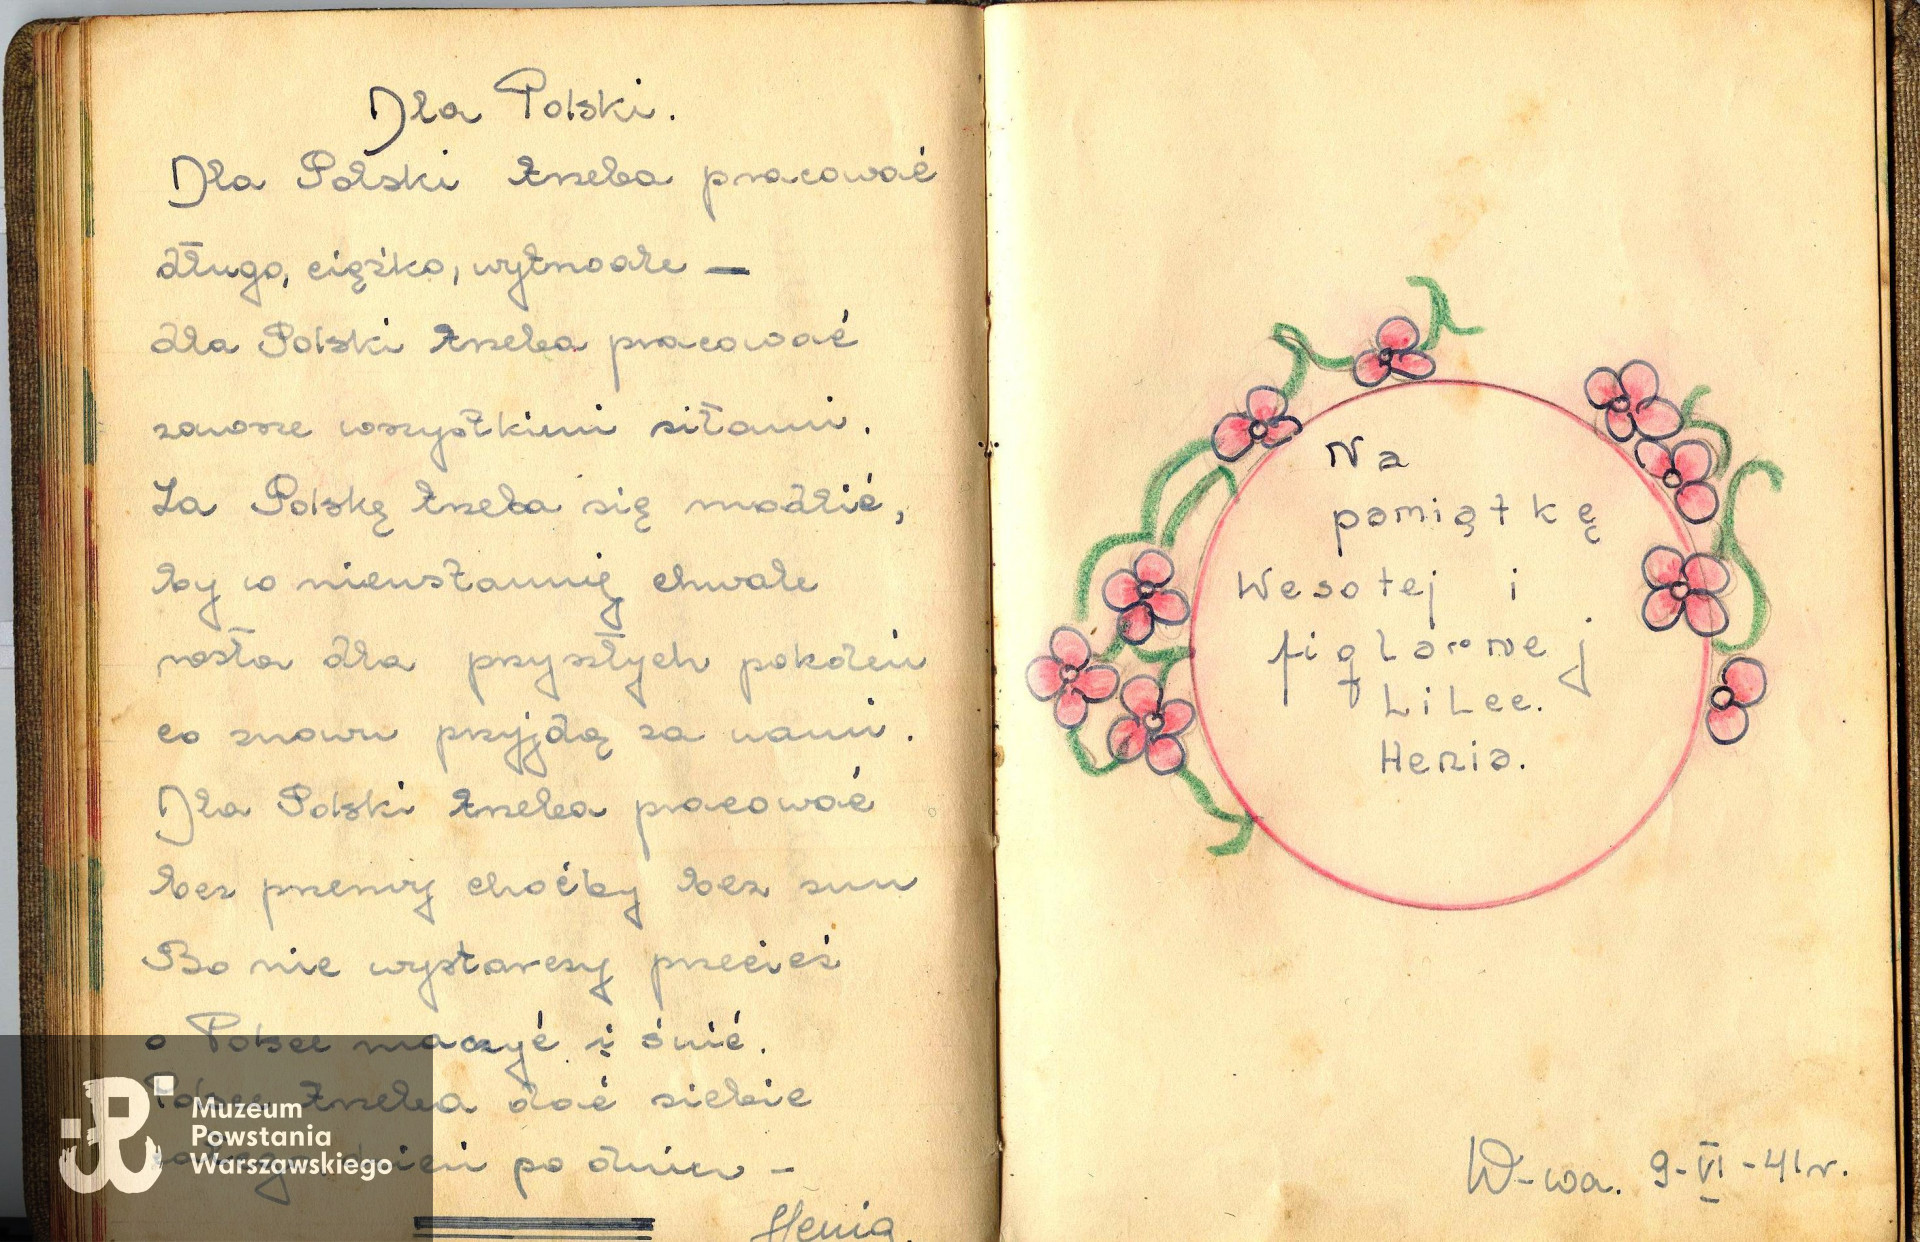 Dla Polski.
Dla Polski trzeba pracować
długo, ciężko, wytrwale —
dla Polski trzeba pracować
zawsze wszystkimi siłami.
Za Polskę trzeba się modlić,
by w nieustannej chwale
rosła dla przyszłych pokoleń
co znowu przyjdą za nami.
Dla Polski trzeba pracować
bez przerwy choćby bez snu
Bo nie wystarczy przecież
o Polsce marzyć i śnić.
Polsce trzeba dać siebie
całego dzień po dniu –
Henia.
Na
pamiątkę
Wesołej i
figlarnej
Lilce.
Henia.
W-wa. 9-VI-41r.
Muzeum
Powstania
Warszawskiego